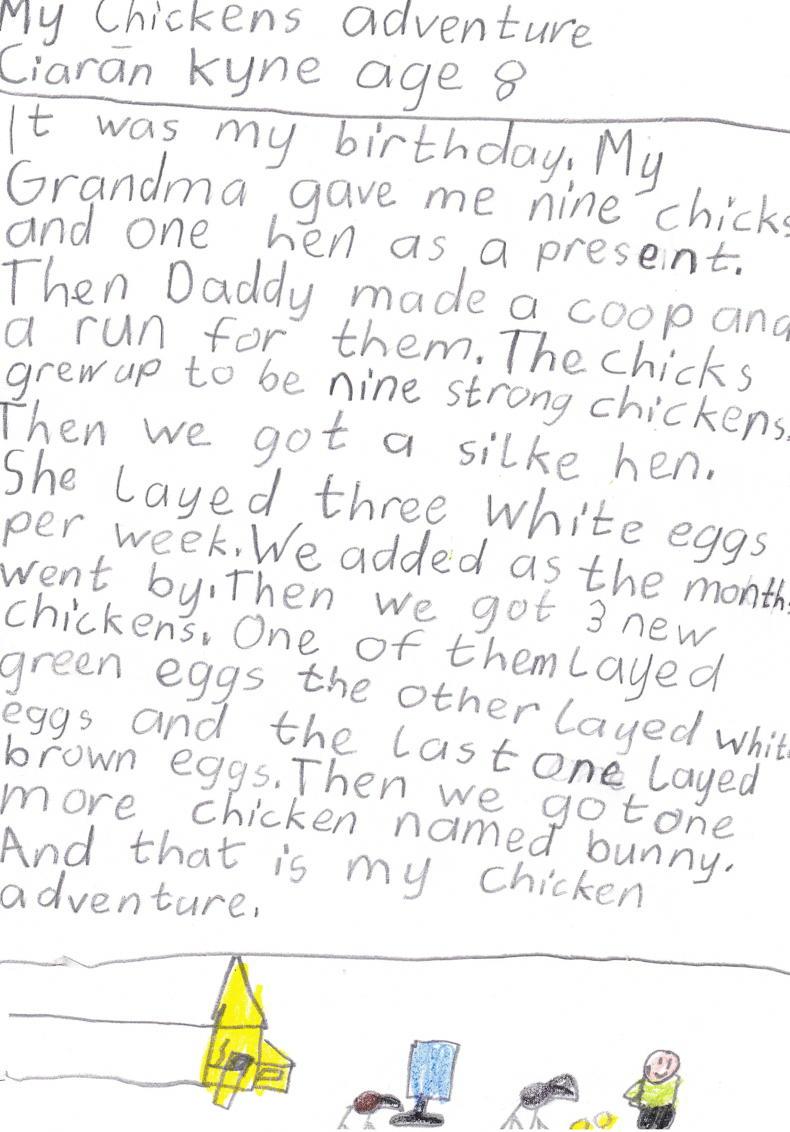 My Chickens adventure
Ciarán Kyne age 8
It was my birthday. My
Grandma gave me nine chicks
and one hen as a present.
Then Daddy made a coop and
a run for them. The chicks
grew up to be nine strong chickens.
Then we got a silke hen.
She layed three white eggs
per week. We added as the months
went by. Then we got 3 new
chickens. One of them layed
green eggs the other layed white
eggs and the last one layed
brown eggs. Then we got one
more chicken named bunny.
And that is my chicken
adventure.